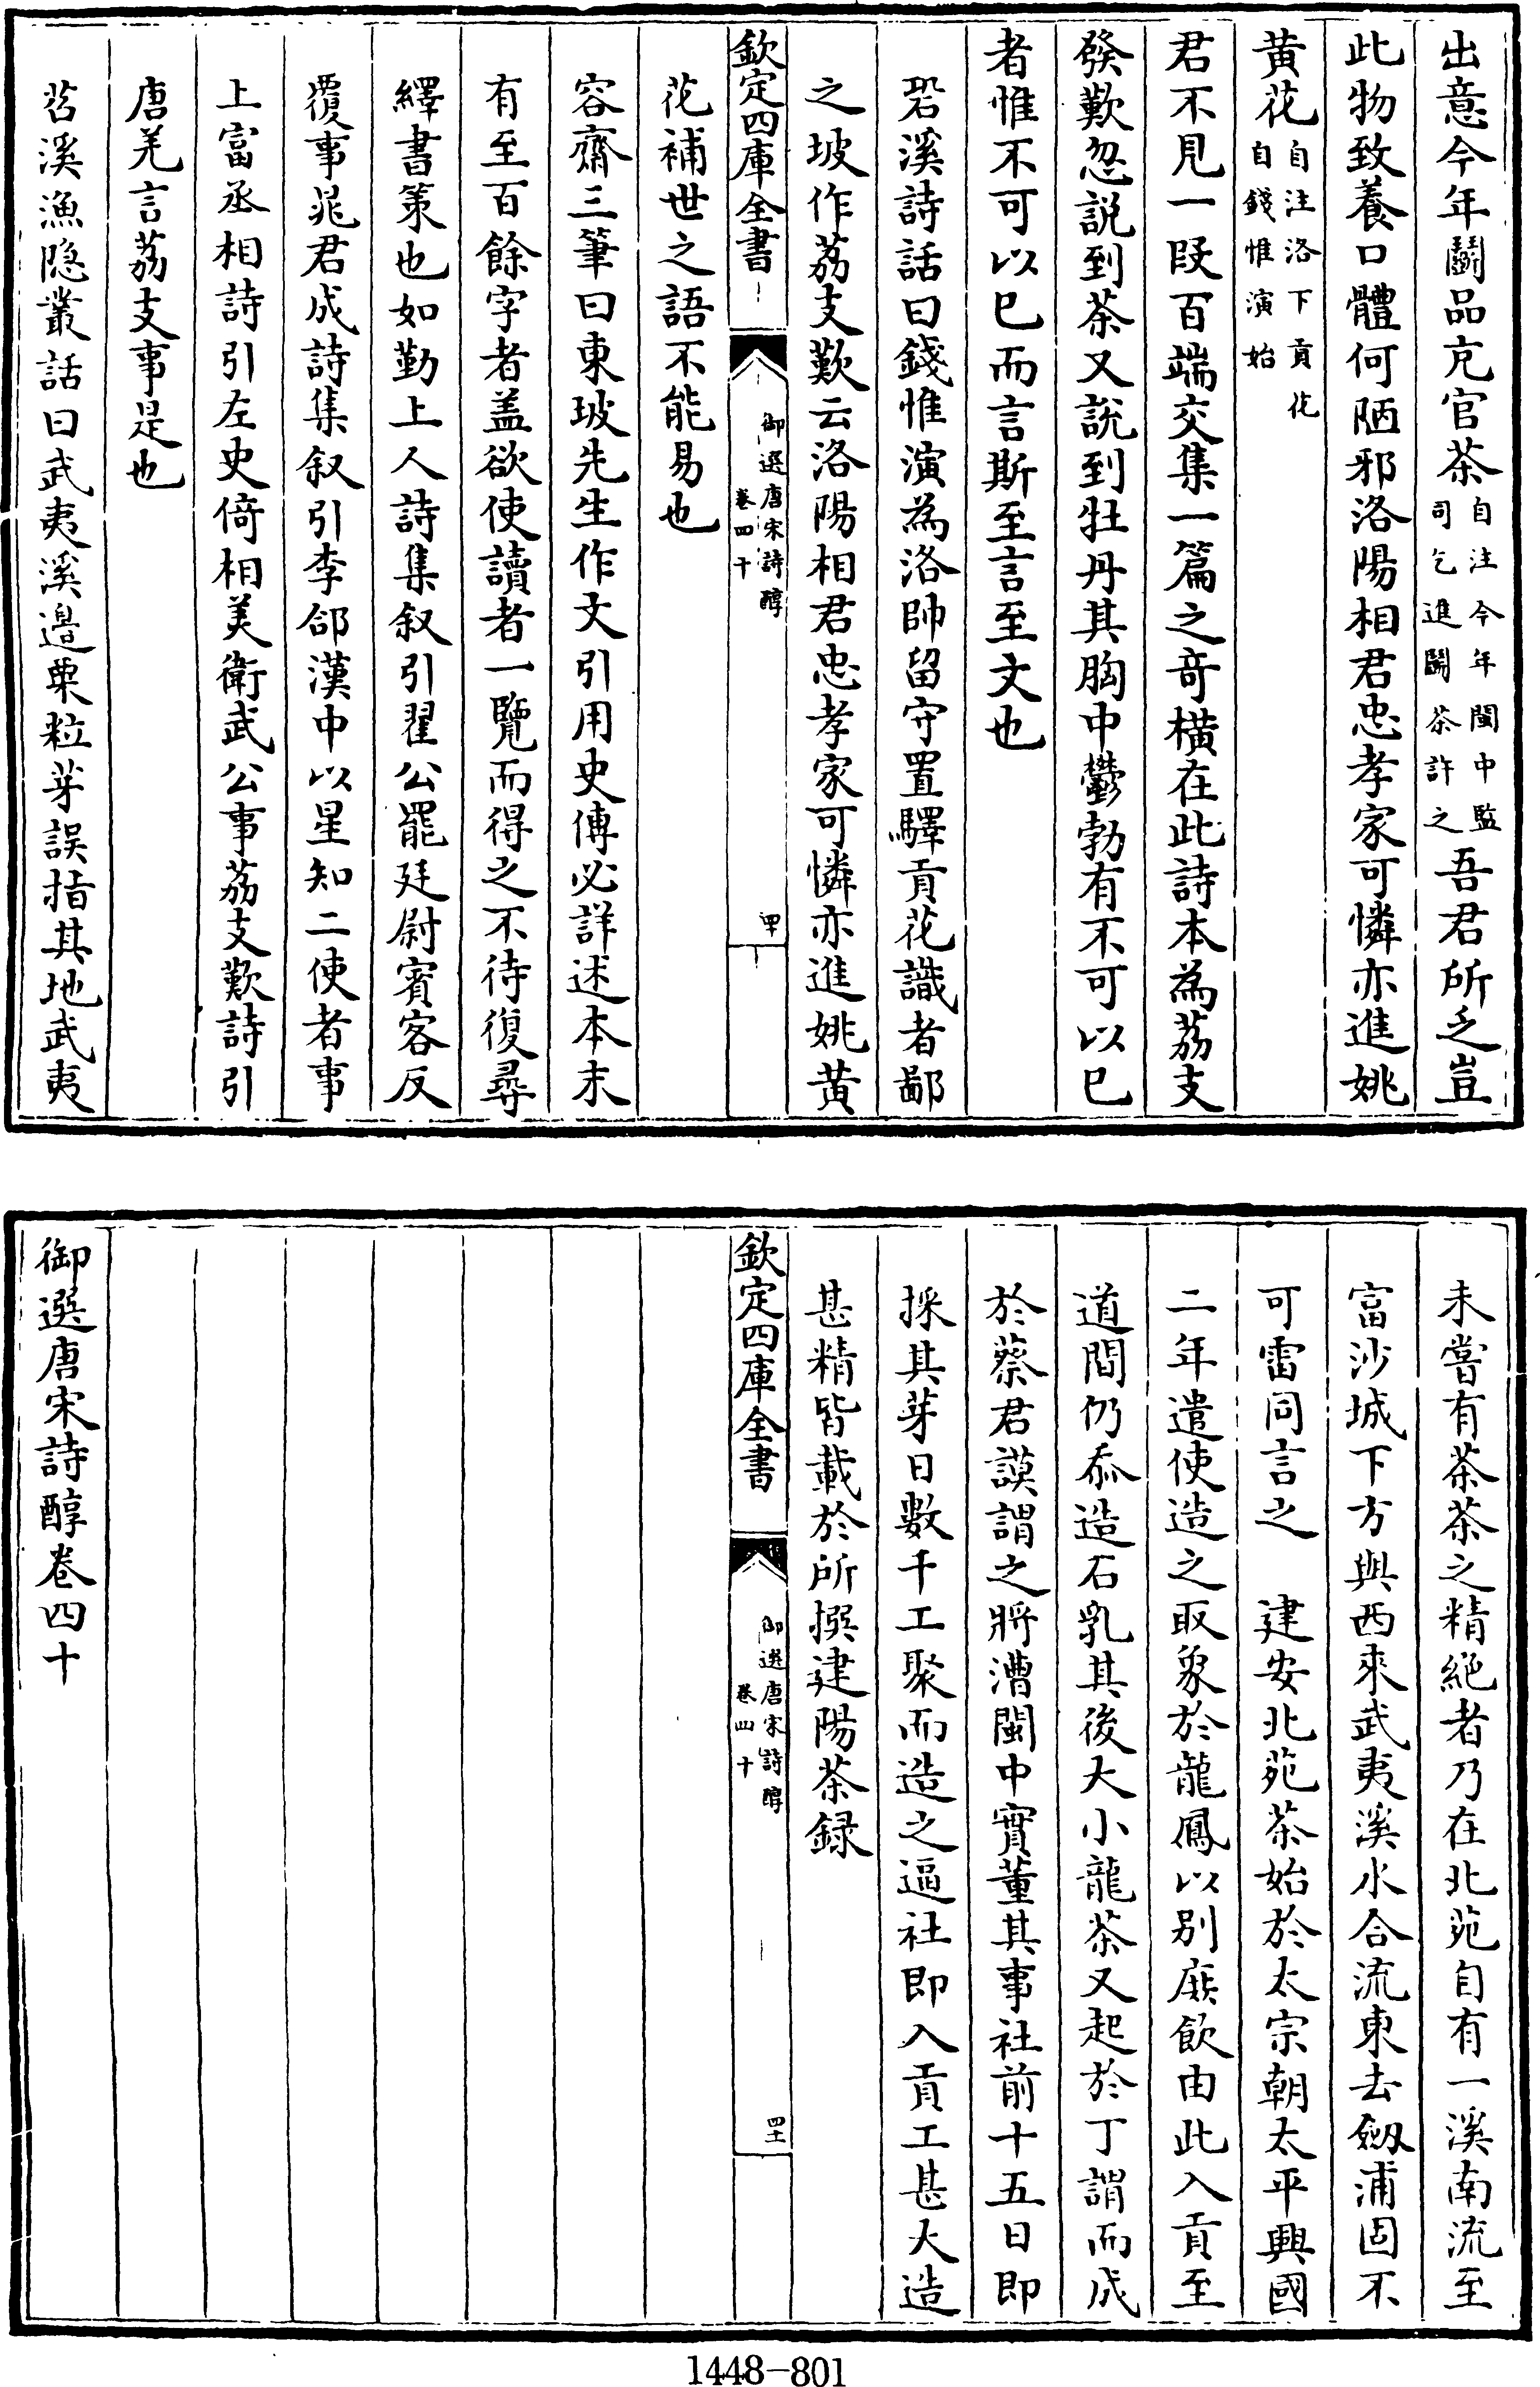 出意今年鬭品充官茶自注今年閩中監司乞進鬭茶許之吾君所乏豈
此物致養口體何陋邪洛陽相君忠孝家可憐亦進姚
黄花自注洛下貢花自錢惟演始
君不見一段百端交集一篇之竒横在此詩本為荔支
發歎忽説到茶又説到牡丹其胸中鬱勃有不可以已
者惟不可以已而言斯至言至文也
碧溪詩話曰錢惟演為洛帥留守置驛貢花識者鄙
之坡作荔支歎云洛陽相君忠孝家可憐亦進姚黄
欽定四庫全書
御選唐宋詩醇
卷四十
四十
花補世之語不能易也
容齋三筆曰東坡先生作文引用史傳必詳述本末
有至百餘字者盖欲使讀者一覽而得之不待復尋
繹書策也如勤上人詩集叙引翟公罷廷尉賓客反
覆事晁君成詩集叙引李郃漢中以星知二使者事
上富丞相詩引左史倚相美衛武公事荔支歎詩引
唐羌言荔支事是也
苕溪漁隠叢話曰武夷溪邉粟粒芽誤指其地武夷
未嘗有茶茶之精絶者乃在北苑自有一溪南流至
富沙城下方與西來武夷溪水合流東去劔浦固不
可雷同言之　建安北苑茶始於太宗朝太平興國
二年遣使造之取象於龍鳳以别庻飲由此入貢至
道間仍添造石乳其後大小龍茶又起於丁謂而成
於蔡君謨謂之將漕閩中實董其事社前十五日即
採其芽日數千工聚而造之逼社即入貢工甚大造
甚精皆載於所撰建陽茶録
欽定四庫全書
御選唐宋詩醇
卷四十
四十一
御選唐宋詩醇卷四十
1448-801